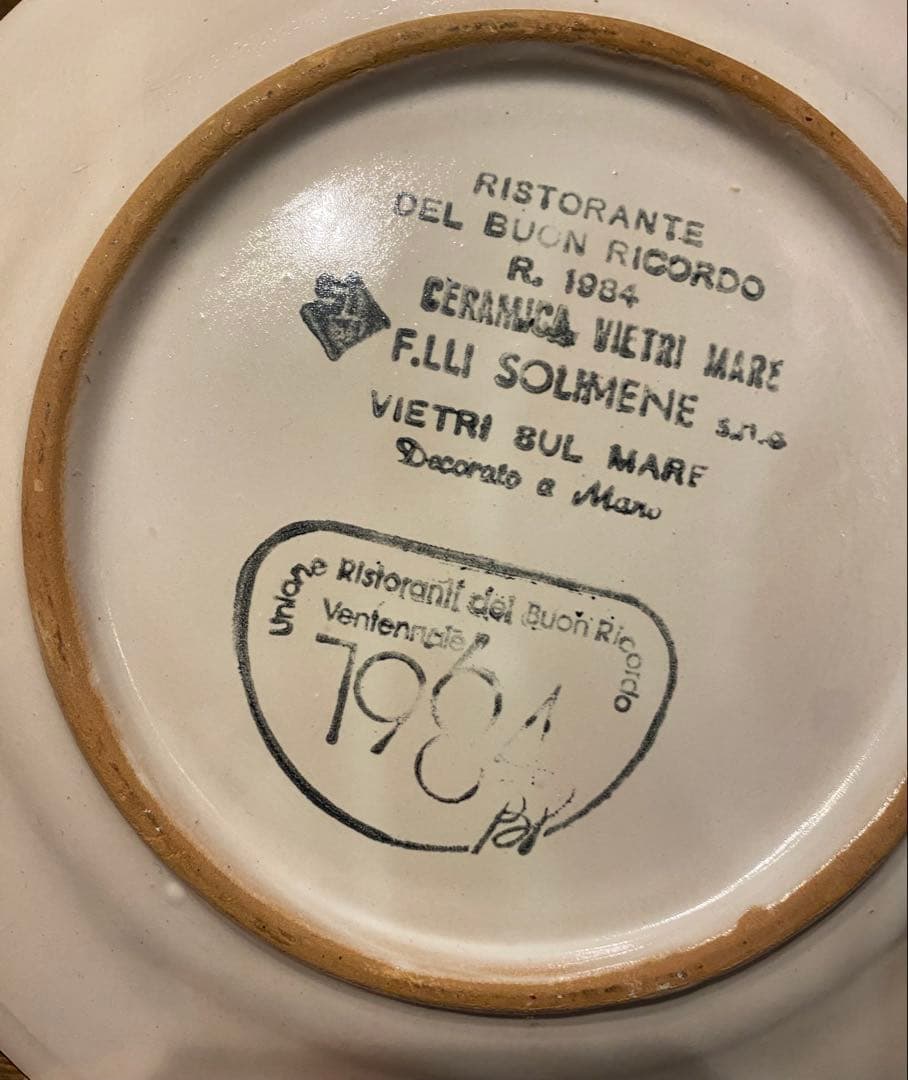 RISTORANTE
DEL BUON RICORDO
R. 1984
CERAMICA VIETRI MARE
F.LLI SOLIMENE s.n.c
VIETRI SUL MARE
Decorato a Mano
Unione Ristoranti del Buon Ricordo
Ventennale
1984